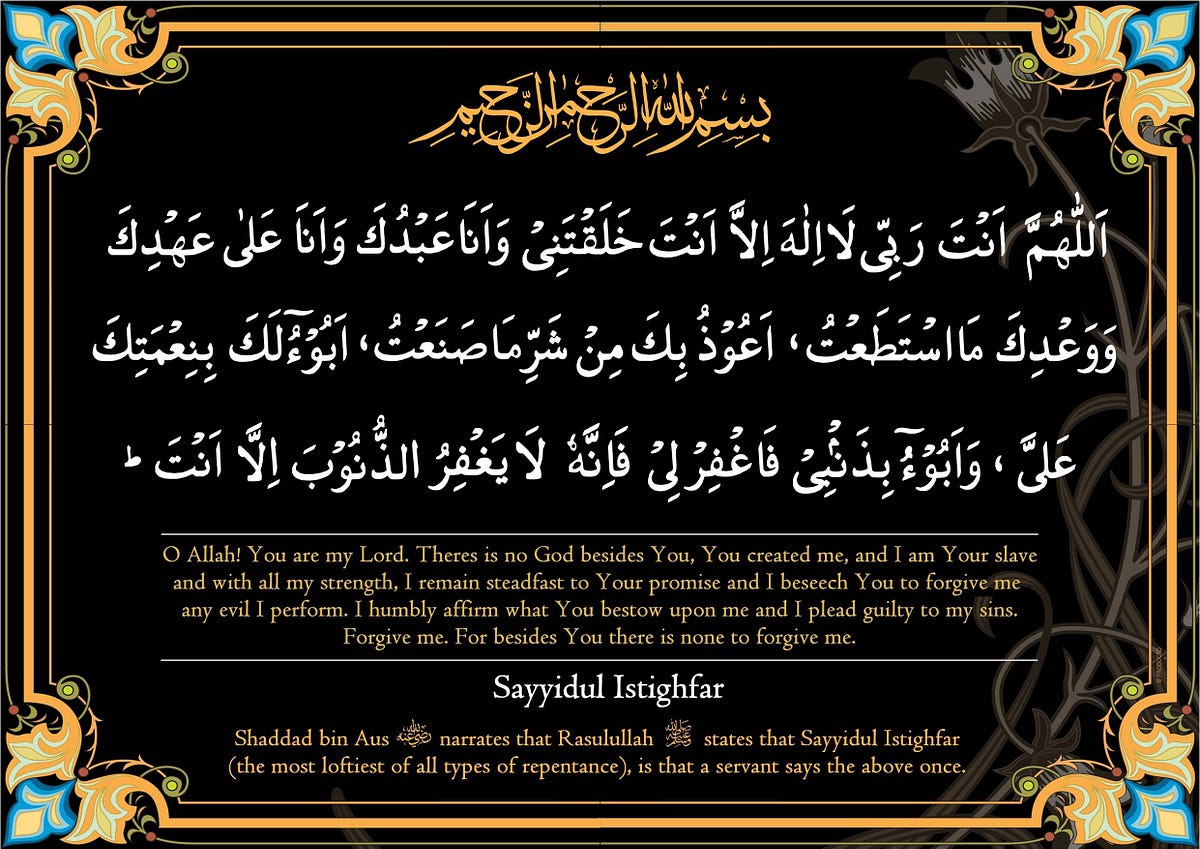 بِسْمِ اللهِ الرَّحْمٰنِ الرَّحِيْمِ
اَللّٰهُمَّ اَنْتَ رَبِّىْ لَا اِلٰهَ اِلَّا اَنْتَ خَلَقْتَنِىْ وَاَنَا عَبْدُكَ وَاَنَا عَلٰى عَهْدِكَ
وَوَعْدِكَ مَا اسْتَطَعْتُ، اَعُوْذُ بِكَ مِنْ شَرِّ مَا صَنَعْتُ، اَبُوْٓءُ لَكَ بِنِعْمَتِكَ
عَلَىَّ، وَاَبُوْٓءُ بِذَنْۢبِىْ فَاغْفِرْ لِىْ فَاِنَّهٗ لَا يَغْفِرُ الذُّنُوْبَ اِلَّا اَنْتَ ؕ
O Allah! You are my Lord. Theres is no God besides You, You created me, and I am Your slave
and with all my strength, I remain steadfast to Your promise and I beseech You to forgive me
any evil I perform. I humbly affirm what You bestow upon me and I plead guilty to my sins.
Forgive me. For besides You there is none to forgive me.
Sayyidul Istighfar
Shaddad bin Aus رضي الله عنه narrates that Rasulullah ﷺ states that Sayyidul Istighfar
(the most loftiest of all types of repentance), is that a servant says the above once.